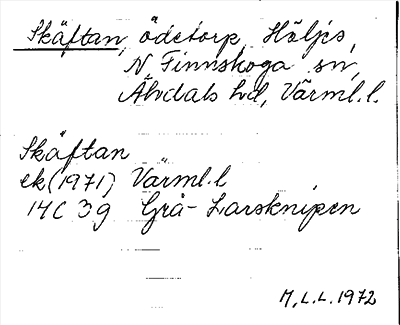 Skäftan, ödetorp, Höljes,
N Finnskoga sn,
Älvdals hd, Värml.l.
Skäftan
ek(1971) Värml.l
14C 3g Grå-Larsknipen
M.L.L. 1972